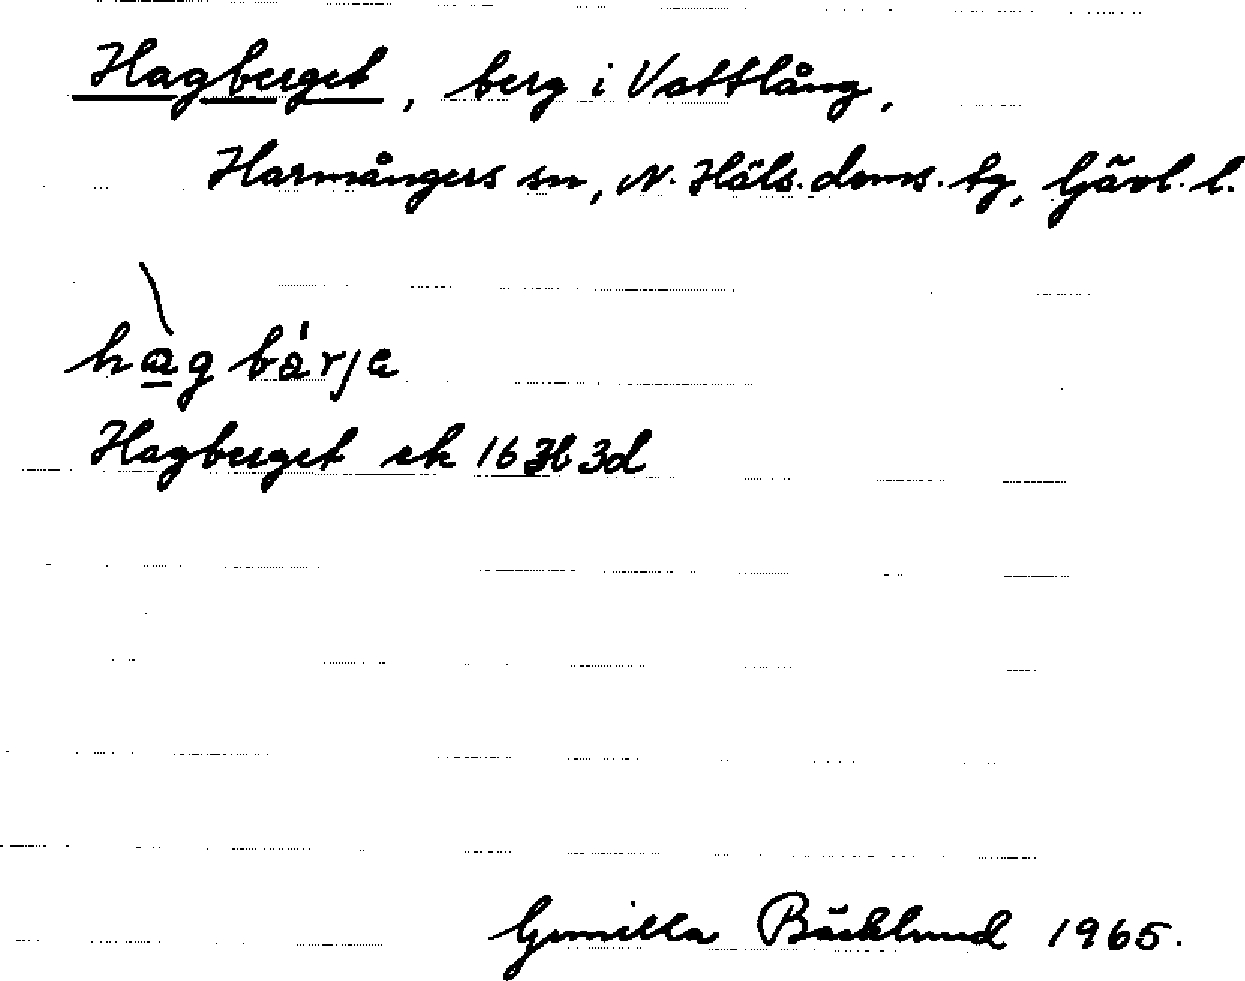 Hagberget, berg i Vattlång,
Harmångers sn, N. Häls. doms. tg, Gävl. l.
hàg bárje
Hagberget ek 16 H 3d
Gunilla Bäcklund 1965.